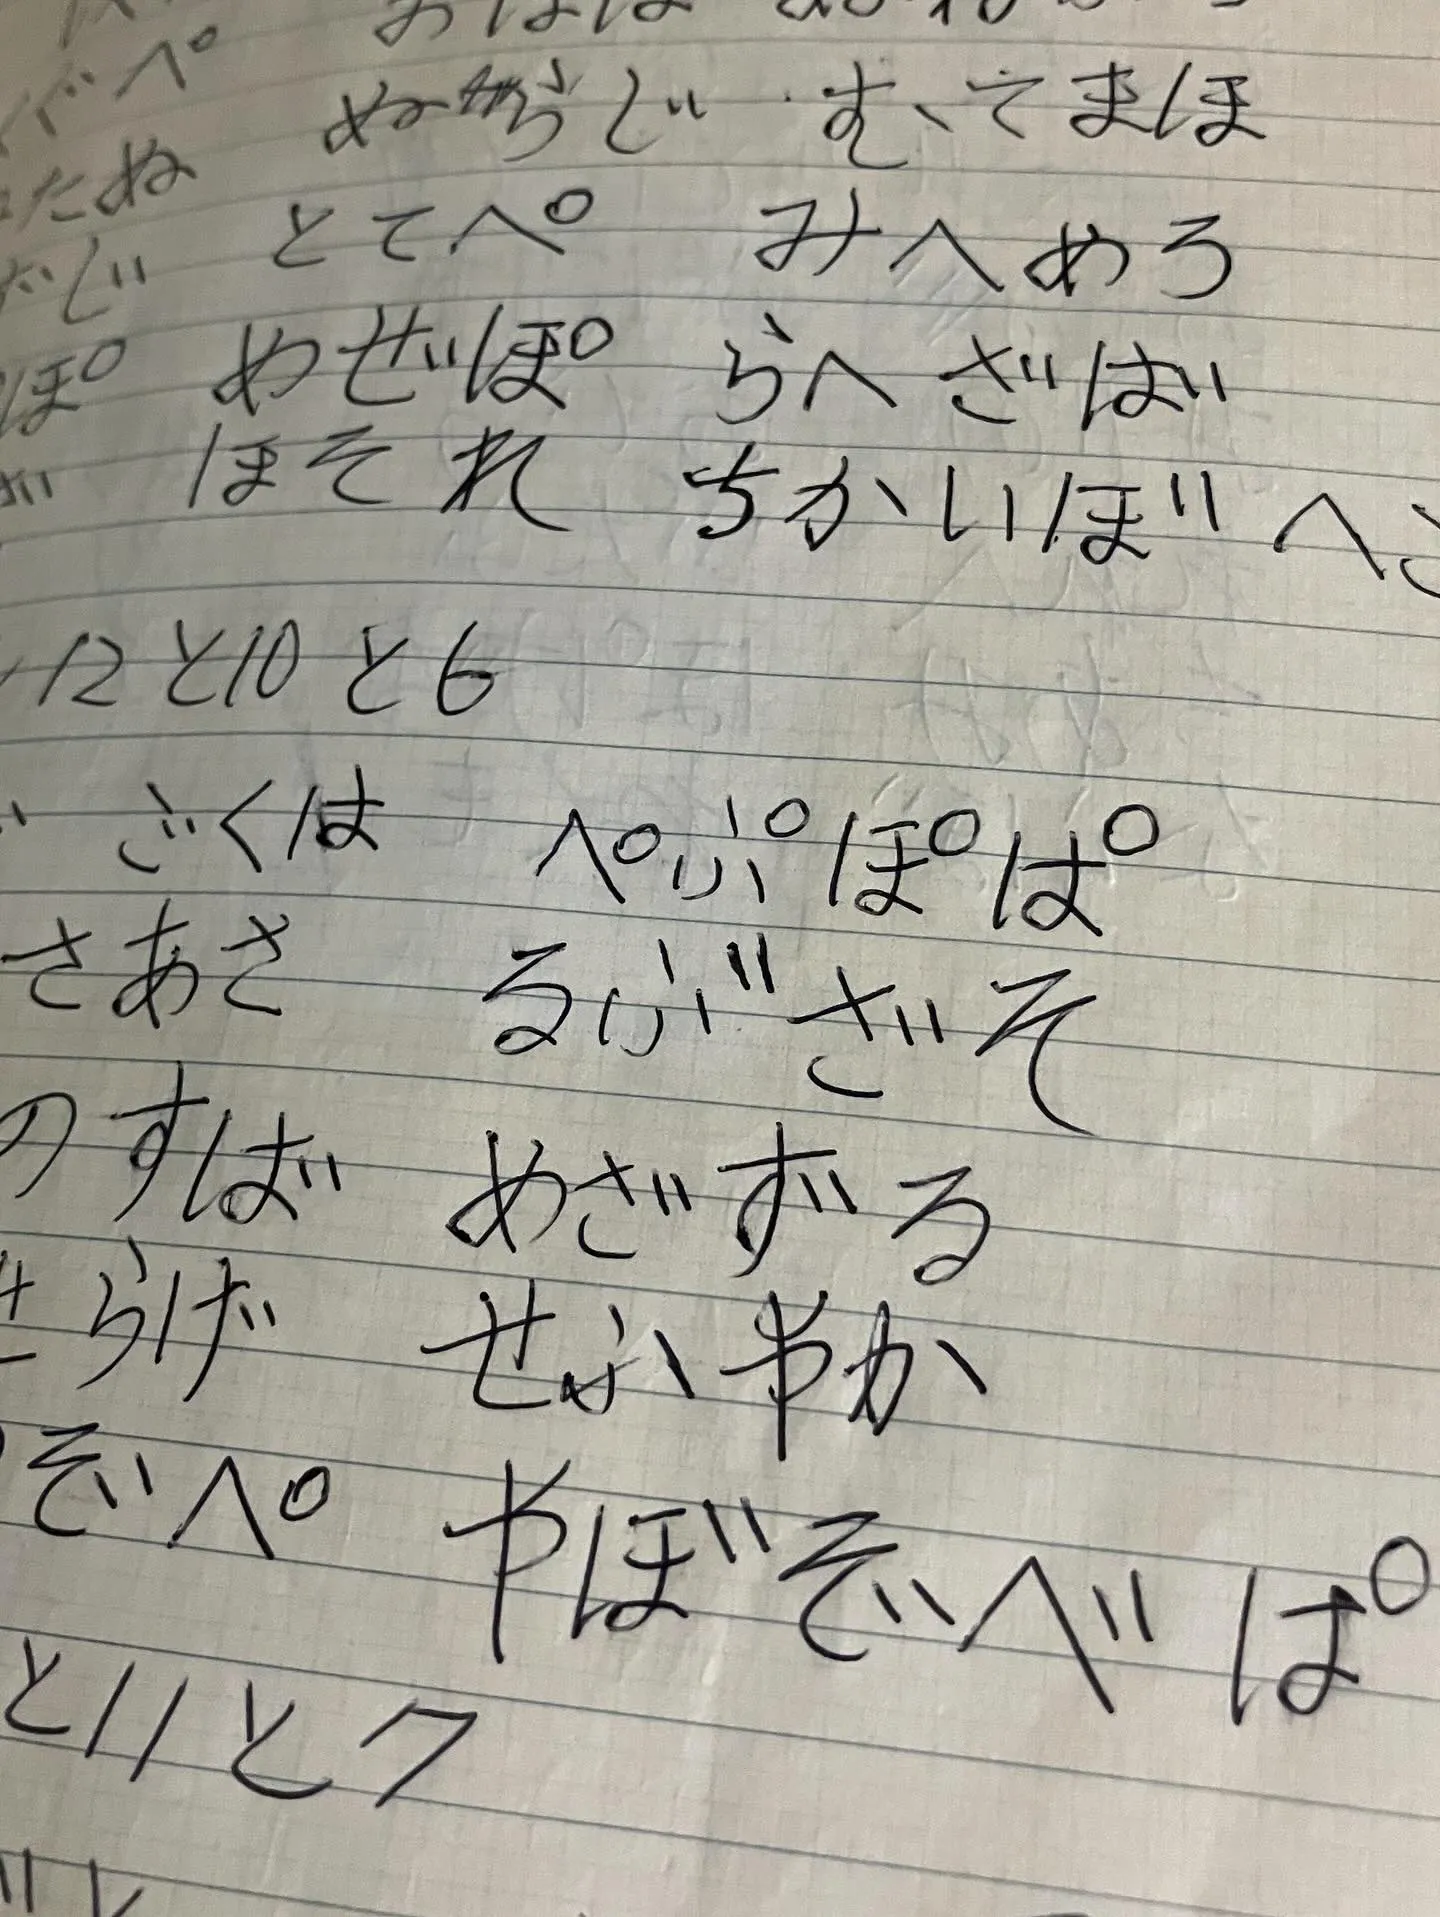 べぺ おばば
たぬ めらじ む、てまほ
じ とてぺ みへめろ
ぽ めぜぽ らへざば
ほそれ ちかいぼ へ
12と10と6
ごくは ぺぷぽぱ
さあさ るぶざそ
のすば めざずる
せらげ せふやか
ぞぺ やぼぞべぱ
と11と7